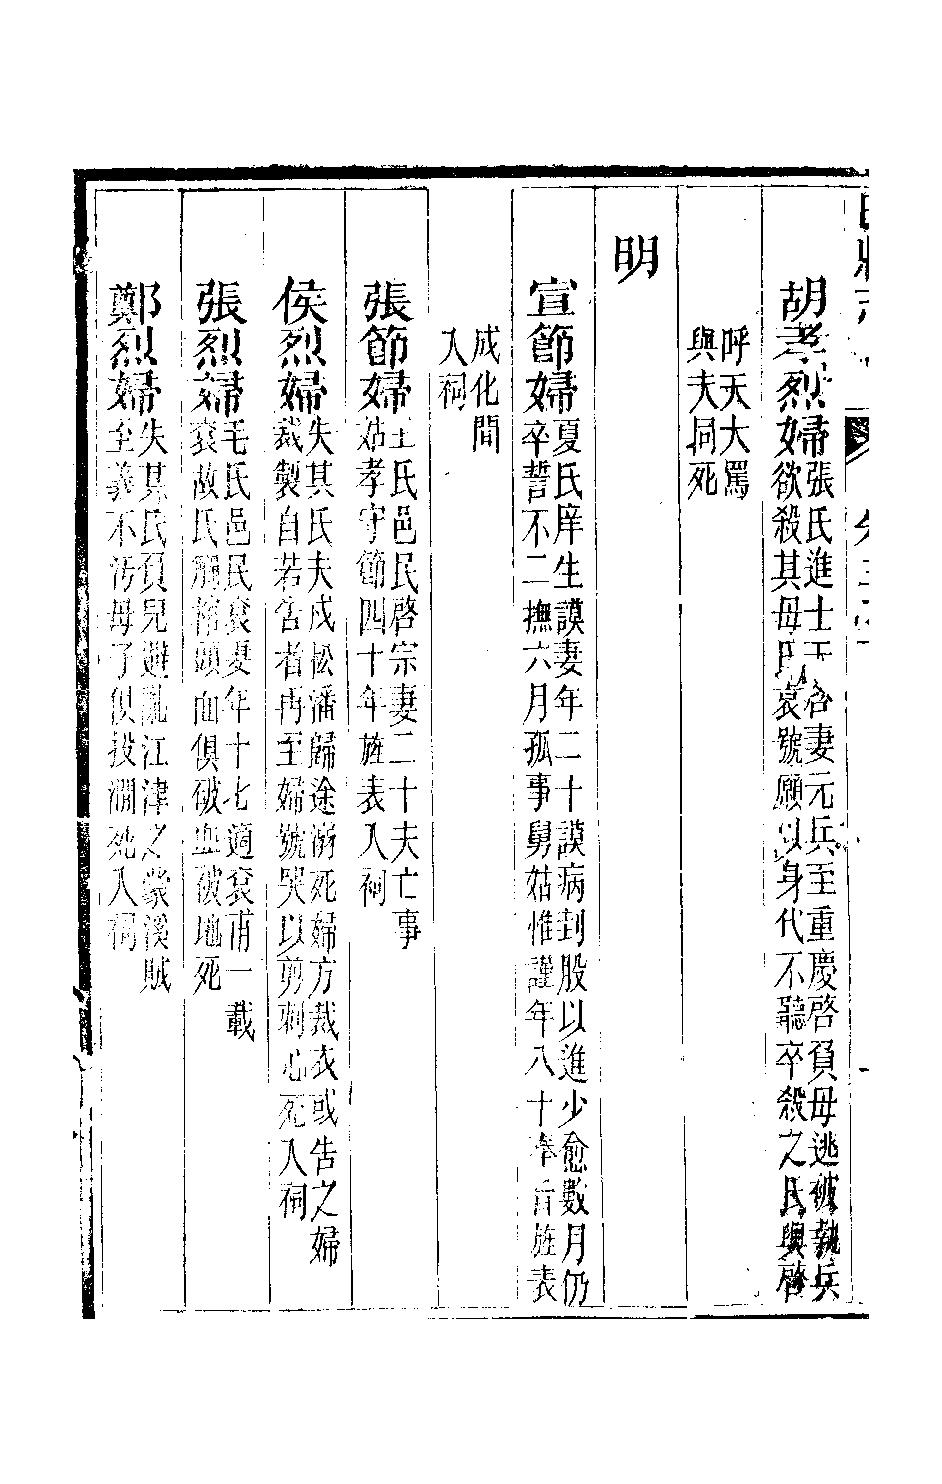 胡孝烈婦張氏進士王啓妻元兵至重慶啓負母逃被執兵
欲殺其母氏哀號願以身代不聽卒殺之氏與啓
呼天大罵
與夫同死
明
宣節婦夏氏庠生謨妻年二十謨病刲股以進少愈數月仍
卒誓不二撫六月孤事舅姑惟謹年八十奉旨旌表
成化間
入祠
張節婦王氏邑民啓宗妻二十夫亡事
姑孝守節四十年旌表入祠
侯烈婦失其氏夫戍松潘歸途溺死婦方裁衣或告之婦
裁製自若告者再至婦號哭以剪刺心死入祠
張烈婦毛氏邑民袞妻年十七適袞甫一載
袞故氏觸棺頭面俱破血被地死
鄭烈婦失其氏負兒避亂江津之蒙溪賊
至義不汚母子俱投澗死入祠